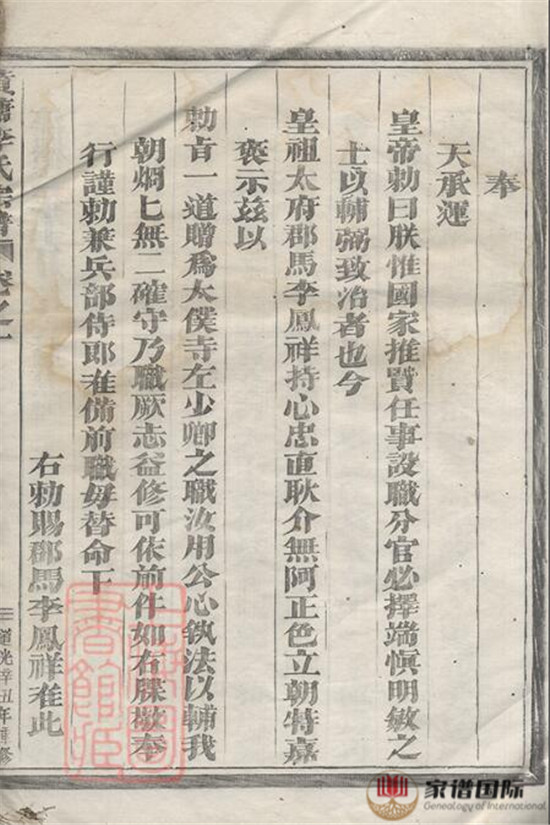 奉
天承運
皇帝勅曰朕惟國家推賢任事設職分官必擇端愼明敏之
士以輔弼致治者也今
皇祖太府郡馬李鳳祥持心忠直耿介無阿正色立朝特嘉
褒示茲以
勅肯一道贈爲太僕寺左少卿之職汝用公心執法以輔我
朝烱匕無二確守乃職厥志益修可依前件如右牒檄奉
行謹勅兼兵部侍郎准備前職毋替命下
右勅賜郡馬李鳳祥准此
李氏宗譜 卷之一
道光辛丑年重修
家谱国际
Genealogy of International